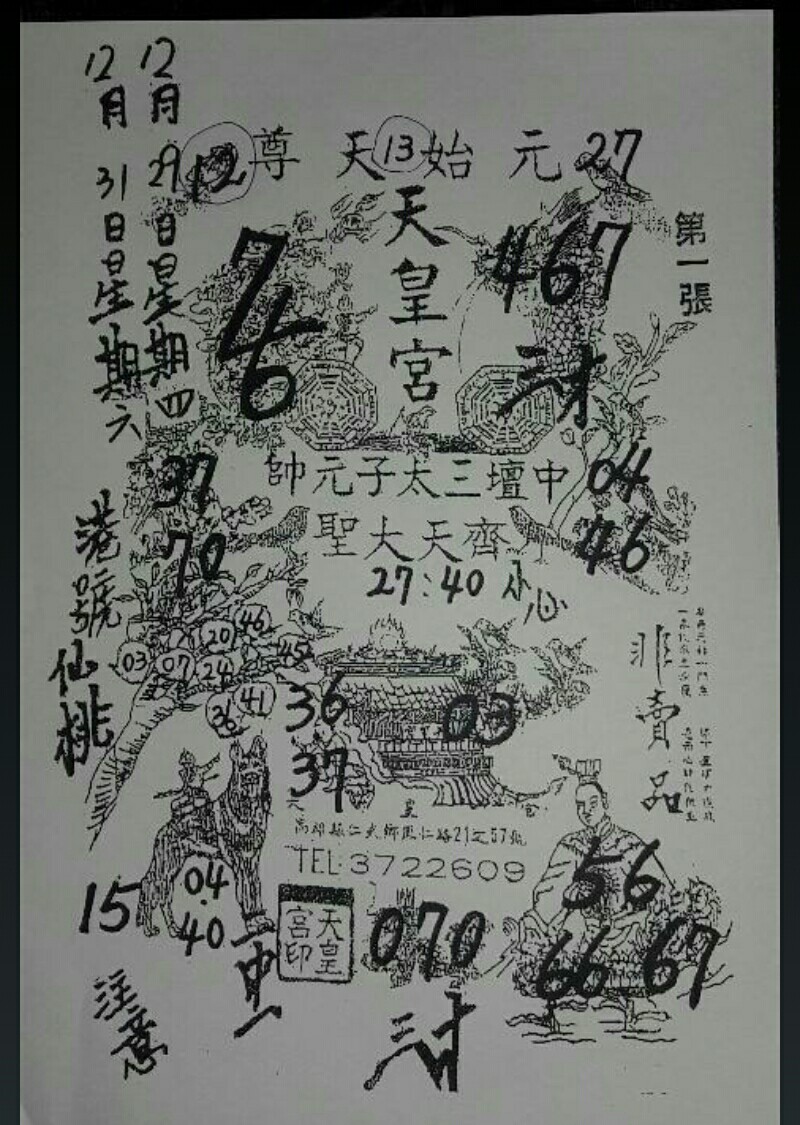 12月29日星期四
12月31日星期六
港號仙桃
12 尊天13始元 27
天皇宮
第一張
76
467
三才
37
帥元子太三壇中 04
70
聖大天齊 46
27:40 小心
46
20
45
03 07 24
41
36
36
03
37
非賣品
天皇宮
高雄縣仁武鄉鳳仁路21之57號
TEL:3722609
15
04.40
一中一
天皇宮印
070
三才
56
66 67
注意